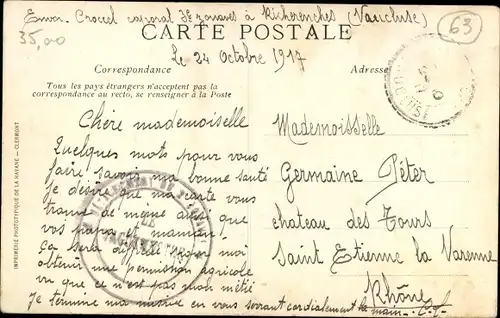 Envoi. Crociel caporal 3e zouaves à Richerenches (Vaucluse)
63
35,00
CARTE POSTALE
Le 24 Octobre 1917
Correspondance
Adresse
Tous les pays étrangers n'acceptent pas la
correspondance au recto, se renseigner à la Poste
Chère mademoiselle
Quelques mots pour vous
faire savoir ma bonne santé
Je désire que ma carte vous
trouve de même ainsi que
vos papa et maman,
Ça sera difficile pour moi
obtenir une permission agricole
vu que ce n'est pas mon métié
Je termine ma missive en vous serrant cordialement la main.
Mademoisselle
Germaine Péter
chateau des Tours
Saint Etienne la Varenne
Rhône
IMPRIMERIE PHOTOTYPIQUE DE LA HAYANE - CLERMONT